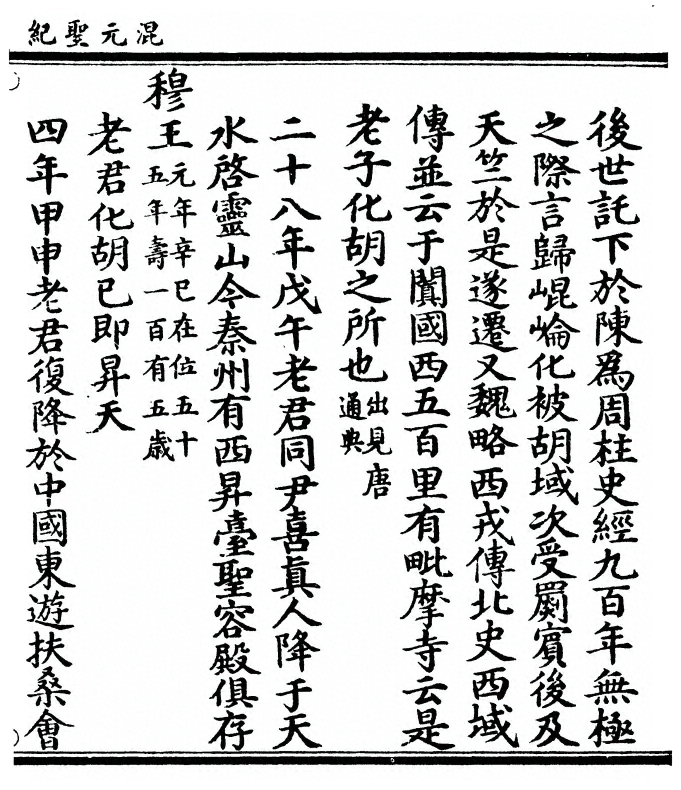 混元聖紀
後世託下於陳爲周柱史經九百年無極
之際言歸崐崘化被胡域次受罽賓後及
天竺於是遂遷又魏略西戎傳北史西域
傳並云于闐國西五百里有毗摩寺云是
老子化胡之所也出見唐通典
二十八年戊午老君同尹喜眞人降于天
水啓靈山今秦州有西昇臺聖容殿俱存
穆王元年辛巳在位五十五年壽一百有五歲
老君化胡已即昇天
四年甲申老君復降於中國東遊扶桑會